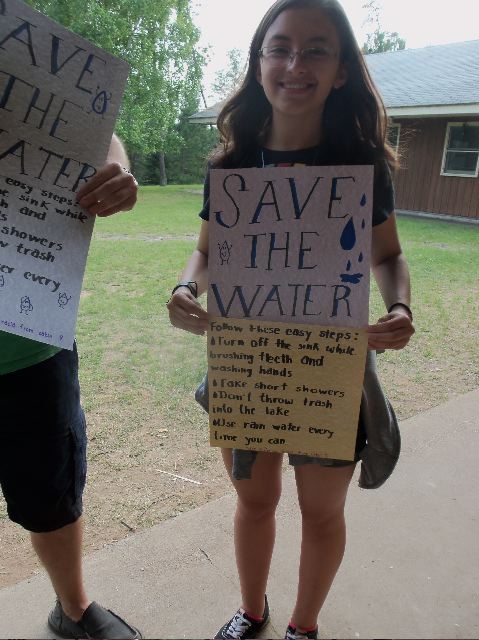 SAVE
THE
WATER
Follow these easy steps:
Turn off the sink while
brushing teeth and
washing hands
Take short showers
Don't throw trash
into the lake
Use rain water every
time you can
SAVE
THE
WATER
easy steps:
sink while
and
showers
trash
every
from cabin 9